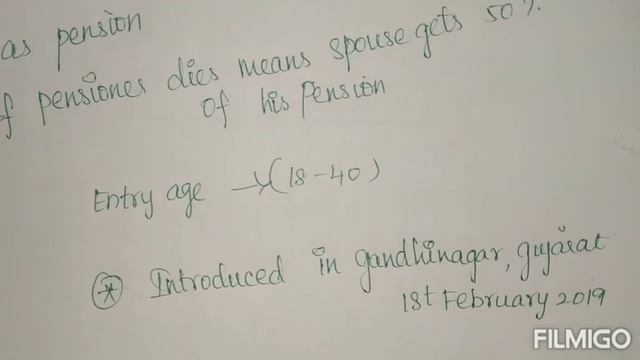 as pension
f pensiones dies means spouse gets 50%.
of his pension
Entry age → (18-40)
* Introduced in gandhinagar, gujarat
1st February 2019
FILMIGO